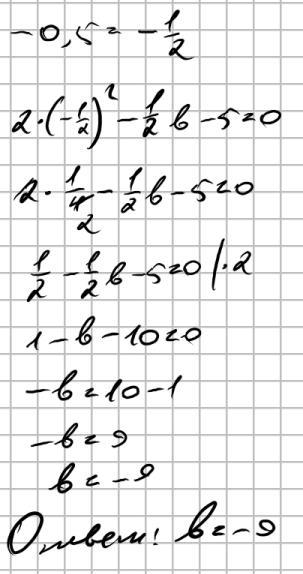 -0,5 = -1/2
2·(-1/2)² - 1/2 b - 5 = 0
2·1/4 - 1/2 b - 5 = 0
2
1/2 - 1/2 b - 5 = 0 |·2
1 - b - 10 = 0
-b = 10 - 1
-b = 9
b = -9
Ответ: b = -9